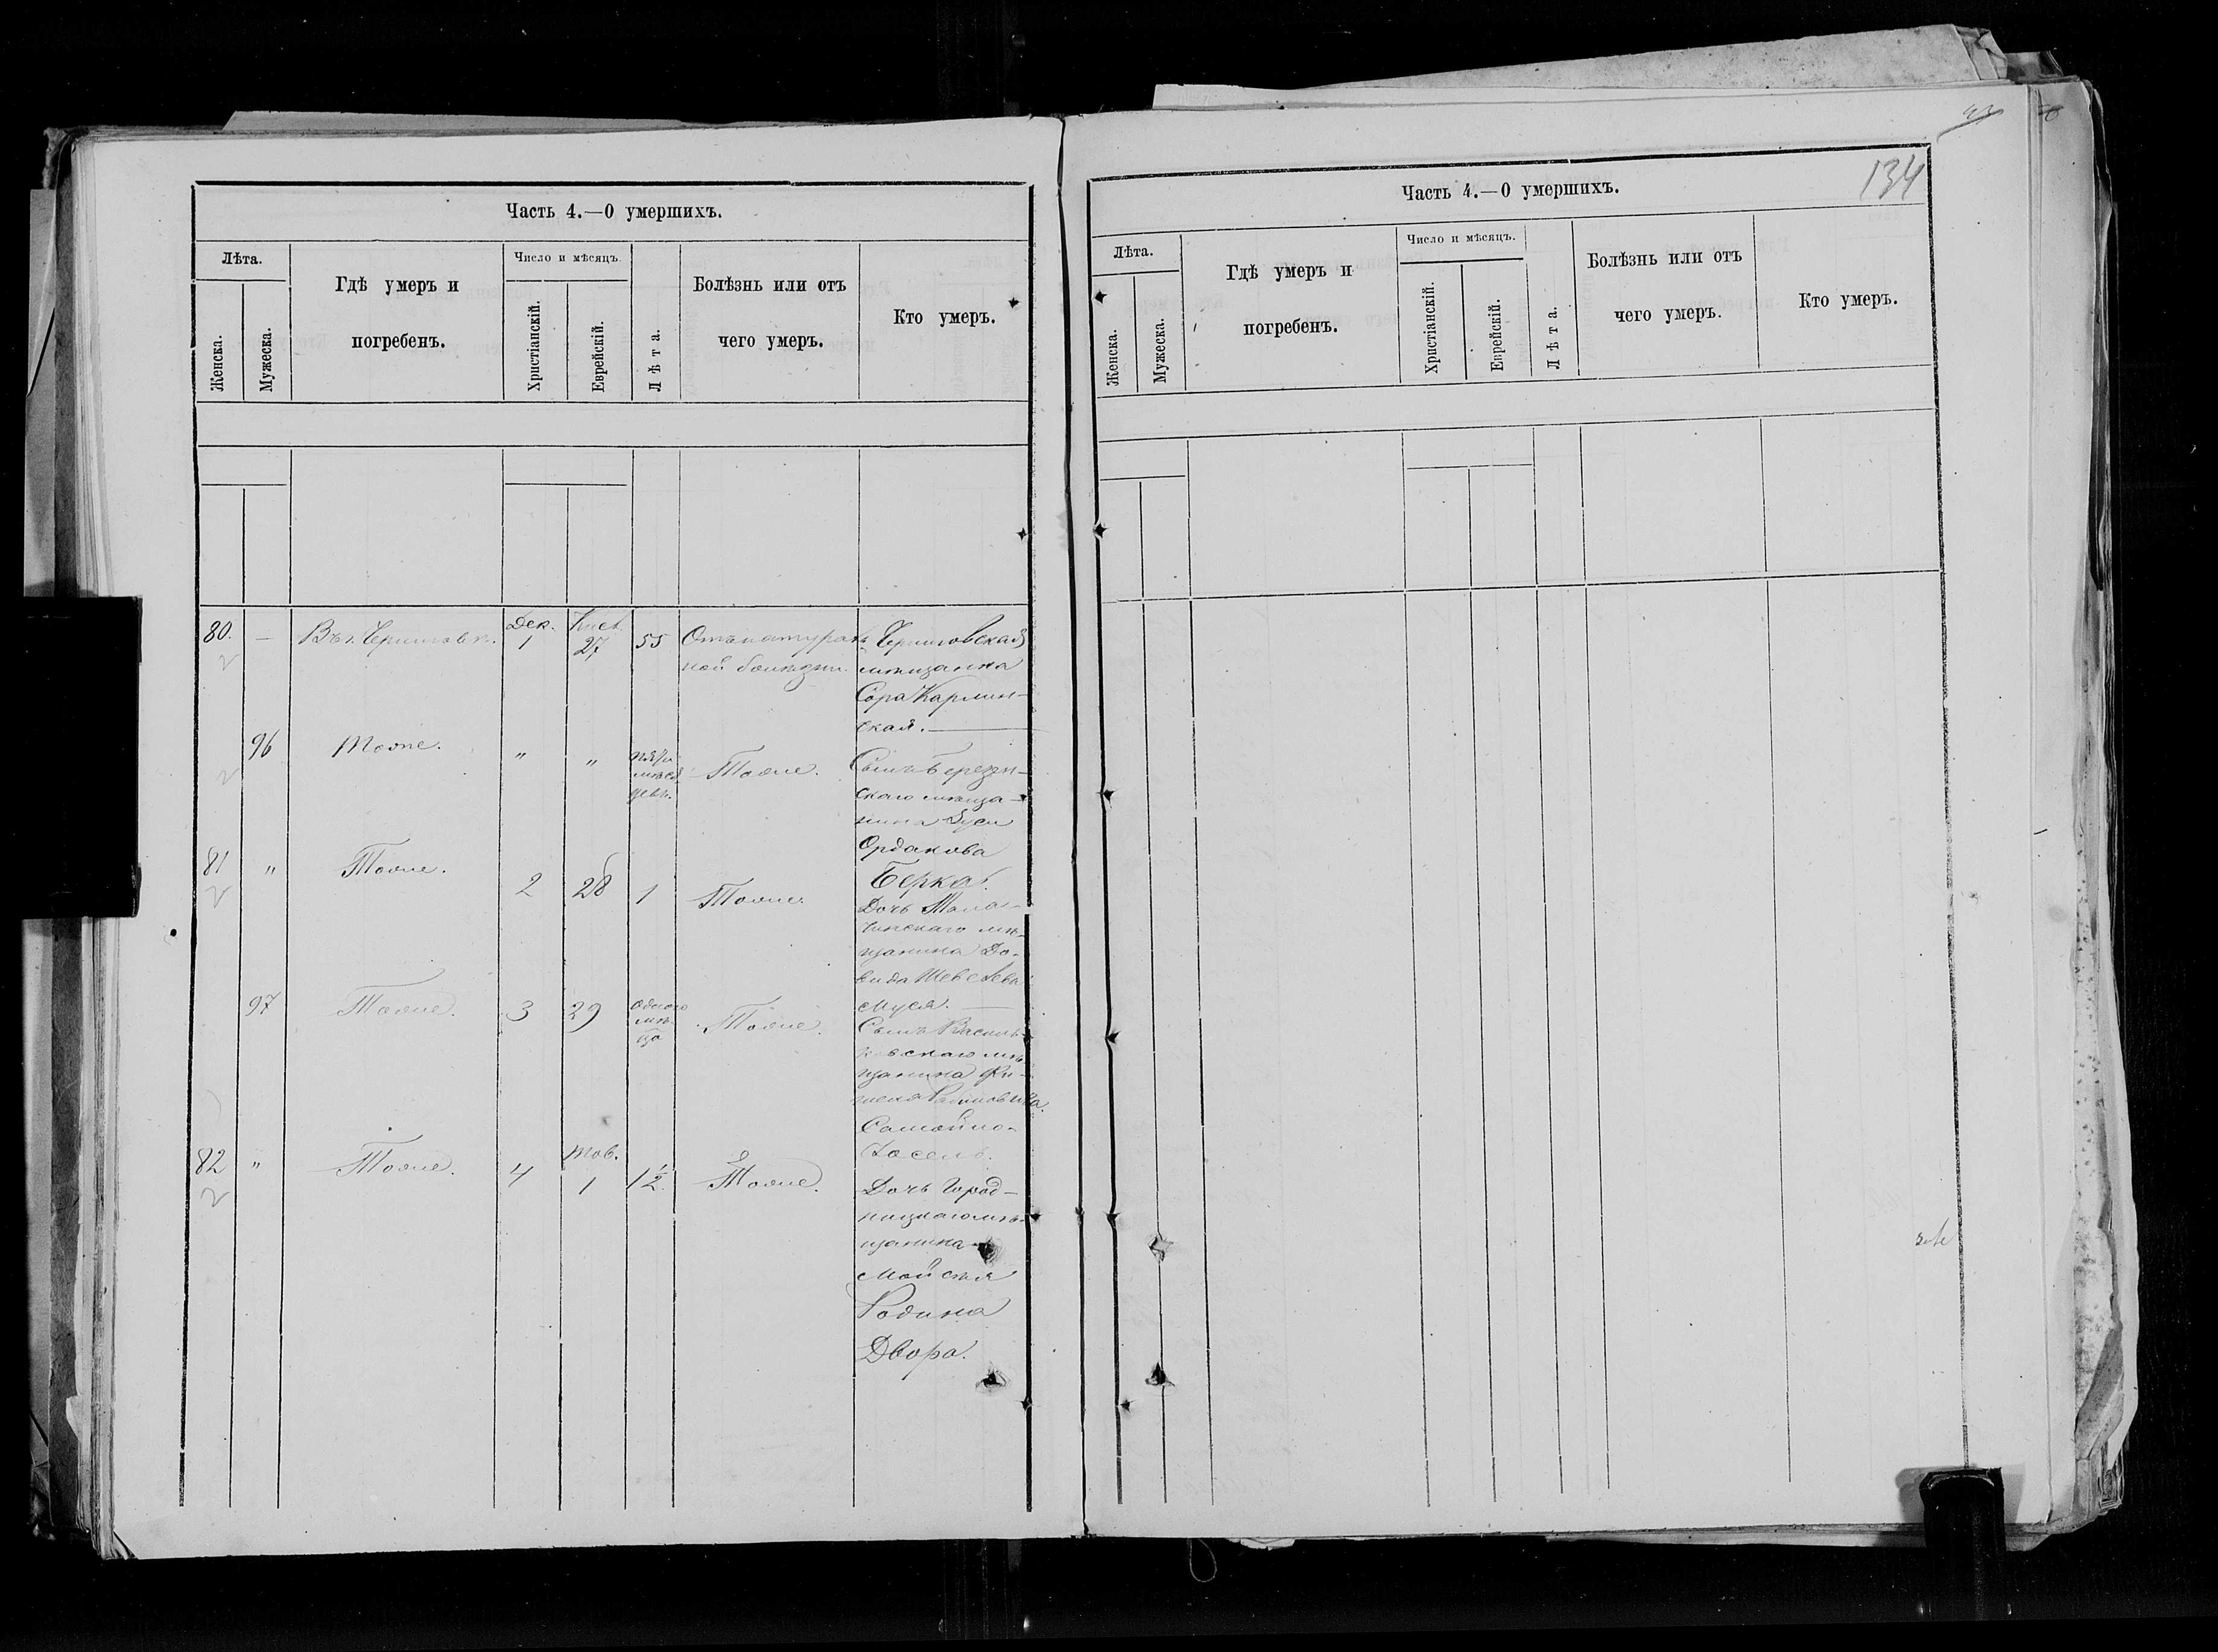 Часть 4.—О умершихъ.
Лѣта.
Женска.
Мужеска.
Гдѣ умеръ и
погребенъ.
Число и мѣсяцъ.
Христіанскій.
Еврейскій.
Лѣта.
Болѣзнь или отъ
чего умеръ.
Кто умеръ.
80. — Въ г. Черниговѣ. Дек. 1 Кисл. 27 55 Отъ натураль-
ной болѣзни.
Черниговская
мѣщанка
Сора Карлин-
ская.
96 Тоже. " " мѣся
цевъ. Тоже.
Сынъ Березин-
скаго мѣща-
нина Зуси
Ордакова
Берка.
81 " Тоже. 2 28 1 Тоже.
Дочь
мѣ-
щанина До-
вида
Муся.
97 Тоже. 3 29 Одного
мѣ-
ца Тоже.
Сынъ Василь-
ковскаго мѣ-
щанина Фи-
шеля
Самойло-
Іосель.
82 " Тоже. 4 Тев. 1 1½ Тоже.
Дочь Город-
ницкаго мѣ-
щанина
Мойсея
Родина
Двора.
134
Часть 4.—О умершихъ.
Лѣта.
Женска.
Мужеска.
Гдѣ умеръ и
погребенъ.
Число и мѣсяцъ.
Христіанскій.
Еврейскій.
Лѣта.
Болѣзнь или отъ
чего умеръ.
Кто умеръ.